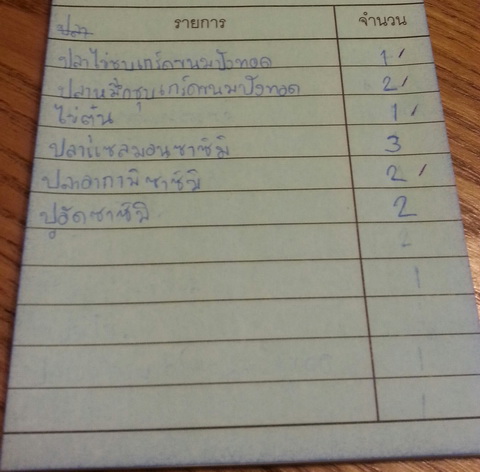 รายการ จำนวน
ปลา
ปลาไข่ชุบเกร็ดขนมปังทอด 1
ปลาหมึกชุบเกร็ดขนมปังทอด 2
ไข่ตุ๋น 1
ปลาแซลมอนซาซิมิ 3
ปลาอากามิซาซิมิ 2
ปูอัดซาซิมิ 2
2
1
1
1